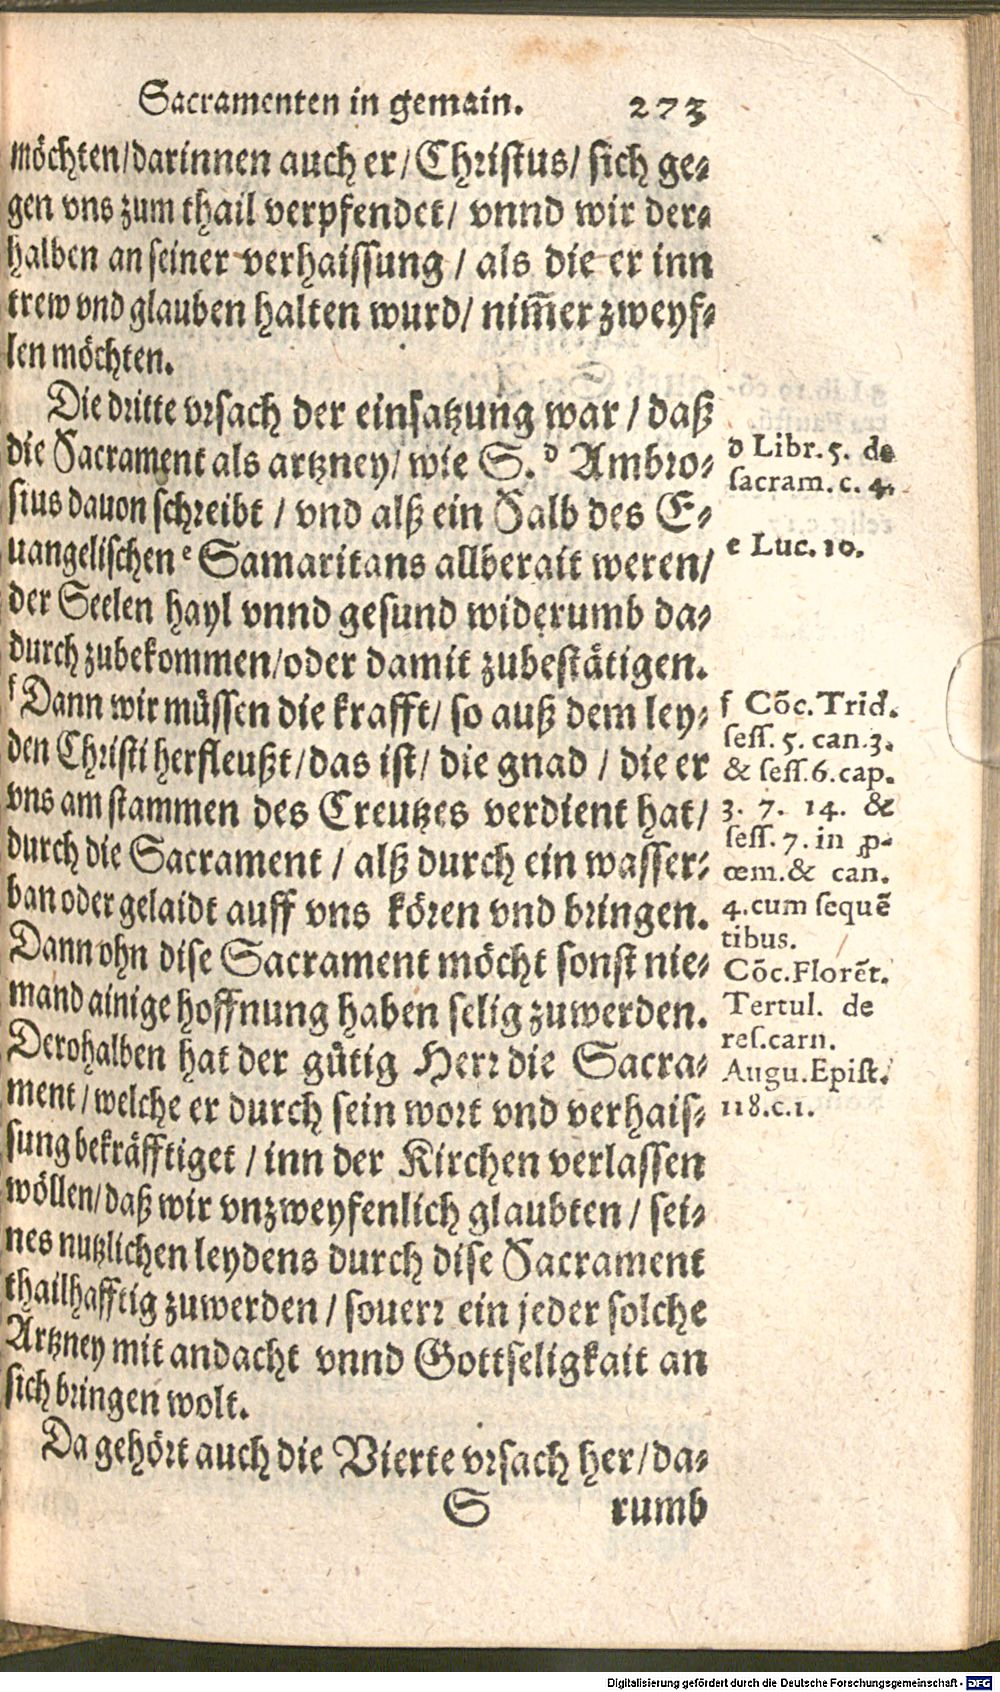 Sacramenten in gemain. 273
möchten/darinnen auch er/Christus/ sich ge-
gen vns zum thail verpfendet/ vnnd wir der-
halben an seiner verhaissung / als die er inn
trew vnd glauben halten wurd/ nim̃er zweyf-
len möchten.
Die dritte vrsach der einsatzung war / daß
die Sacrament als artzney/ wie S. d Ambro-
sius dauon schreibt / vnd alß ein Salb des E-
uangelischen e Samaritans allberait weren/
der Seelen hayl vnnd gesund widerumb da-
durch zubekommen/oder damit zubestätigen.
f Dann wir müssen die krafft/ so auß dem ley-
den Christi herfleußt/das ist/ die gnad / die er
vns am stammen des Creutzes verdient hat/
durch die Sacrament / alß durch ein wasser-
ban oder gelaidt auff vns kören vnd bringen.
Dann ohn dise Sacrament möcht sonst nie-
mand ainige hoffnung haben selig zuwerden.
Derohalben hat der gütig Herr die Sacra-
ment/welche er durch sein wort vnd verhais-
sung bekräfftiget / inn der Kirchen verlassen
wöllen/daß wir vnzweyfenlich glaubten / sei-
nes nutzlichen leydens durch dise Sacrament
thailhafftig zuwerden / souerr ein jeder solche
Artzney mit andacht vnnd Gottseligkait an
sich bringen wolt.
Da gehört auch die Vierte vrsach her/da-
S rumb
d Libr. 5. de
sacram. c. 4.
e Luc. 10.
f Cōc. Trid.
sess. 5. can. 3.
& sess. 6. cap.
3. 7. 14. &
sess. 7. in ꝓ-
œm. & can.
4. cum sequē
tibus.
Cōc. Florēt.
Tertul. de
res. carn.
Augu. Epist.
118. c. 1.
Digitalisierung gefördert durch die Deutsche Forschungsgemeinschaft - DFG